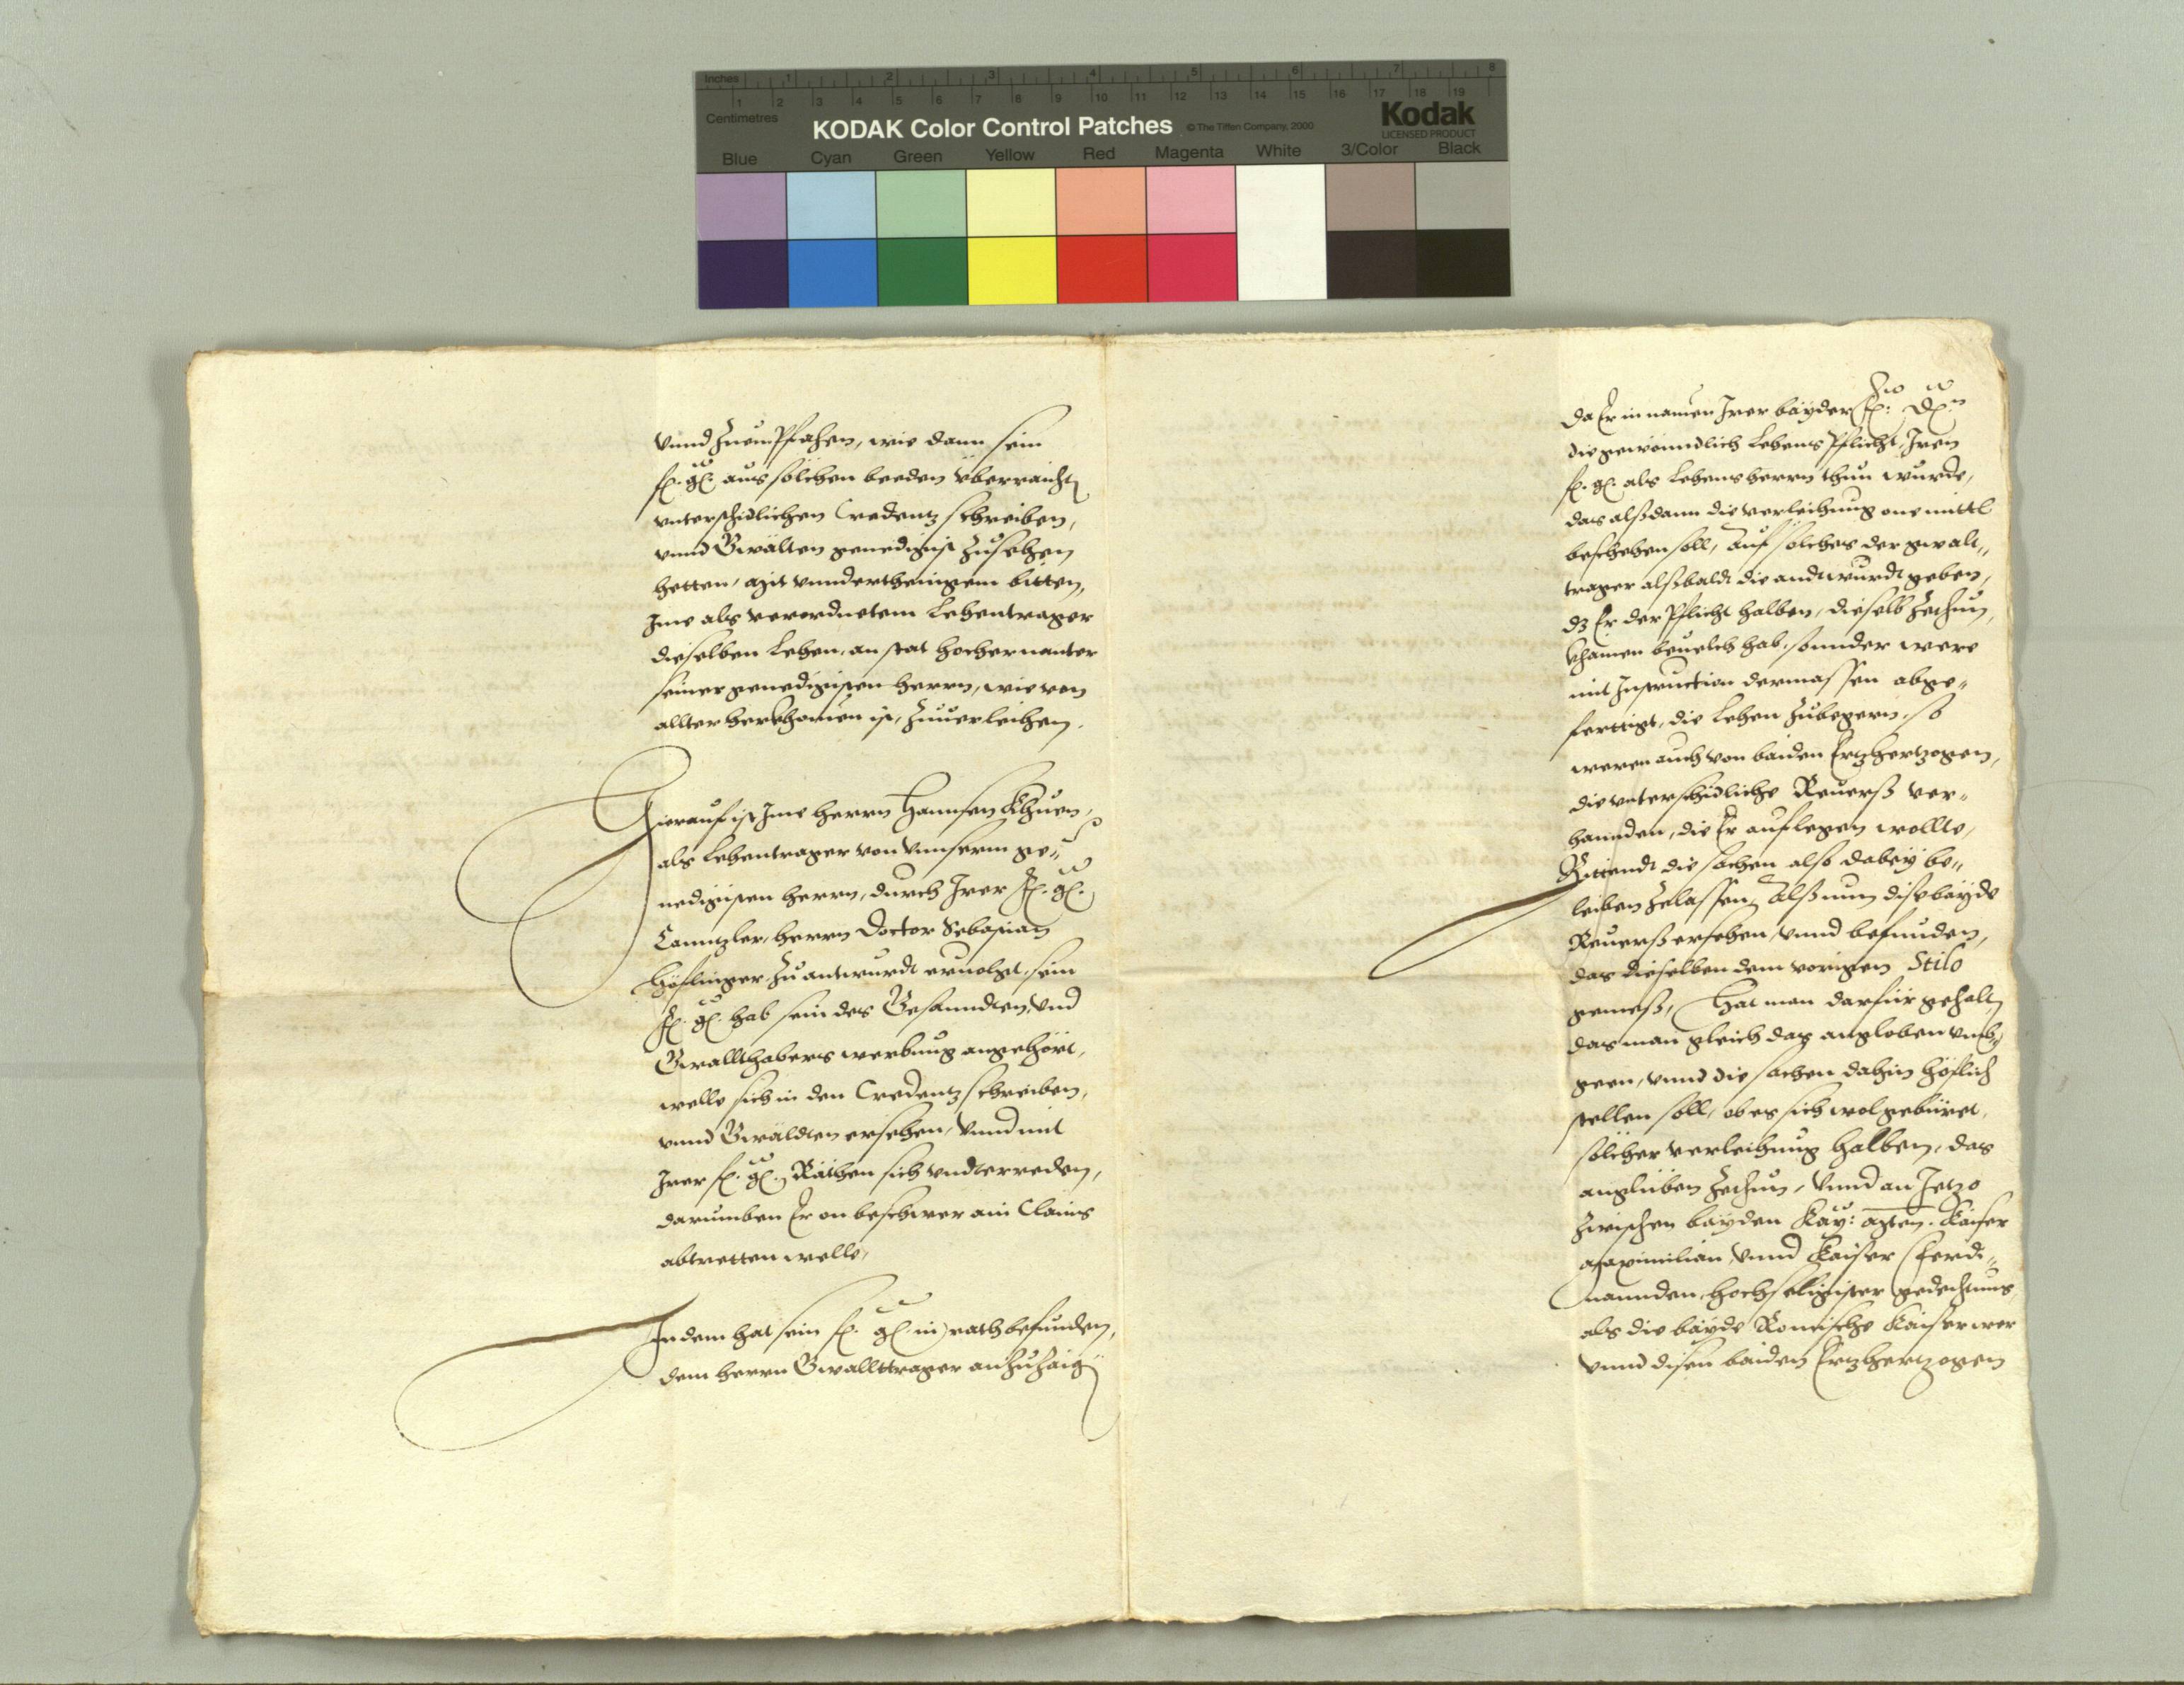 Inches 1 2 3 4 5 6 7 8
1 2 3 4 5 6 7 8 9 10 11 12 13 14 15 16 17 18 19
Centimetres
KODAK Color Control Patches © The Tiffen Company, 2000
Kodak
LICENSED PRODUCT
Blue Cyan Green Yellow Red Magenta White 3/Color Black
vnnd zuempfahen, wie dann sein
f. g. aus solchen beeden vberraicht
vnterschidlichen Credentz schreiben,
vnnd Gwälten genedigist zusehen
hetten, mit vnnderthenigem bitten,
Ime als verordnetem Lehentrager
dieselben Lehen, an stat hochernanter
seiner genedigisten herrn, wie von
allter herkhomen ist, zuuerleihen.
Hierauf ist Ime herrn Hannsen Khuen,
als Lehentrager von vnnserm ge„
nedigisten herrn, durch Irer f. g.
Canntzler, herrn Doctor Sebastian
Höflinger zu antwurdt eruolgt, sein
f. g. hab sein des Gesanndten, vnd
Gwallthabers werbung angehört,
welle sich in den Credentz schreiben,
vnnd Gwäldten ersehen, vnnd mit
Irer f. g. Räthen sich vndterreden,
darumben Er on beschwer ain Clains
abtretten welle,
Indem hat sein f. g. in rath befunden,
dem herrn Gwallttrager anzuzaig
da Er in namen Irer bayder fr: Dr:
die gewönndlich Lehens Pflicht, Iren
f. g. als Lehensherrn thun wurde,
das alßdann die verleihung one mittl
beschehen soll, Auf solches der gwalt„
trager alßbaldt die andtwurdt geben,
dz Er der Pflicht halben, dieselb zethun,
khainen beuelch hab, sonnder were
mit Instruction dermassen abge„
fertigt, die Lehen zubegern, so
weren auch von baiden Ertzhertzogen,
die vnterschidliche Reuerß ver„
hannden, die Er auflegen wollte,
Bittendt die sachen also dabey be„
leiben zelassen, Alß nun dise bayde
Reuerß ersehen, vnnd befunden,
das dieselben dem vorigen Stilo
gemeß, Hat man darfür gehalt
das man gleich das angloben vmb„
geen, vnnd die sachen dahin höflich
stellen soll, ob es sich wol gebüret,
solcher verleihung halben, das
anglüben zethun, vnnd an Jetzo
zwischen bayden Kay: Mten. Kaiser
Maximilian, vnnd Kaiser Ferdi„
nannden, hochseligister gedechtnus,
als die bayde Römische Kaiser wer
vnnd disen baiden Ertzhertzogen